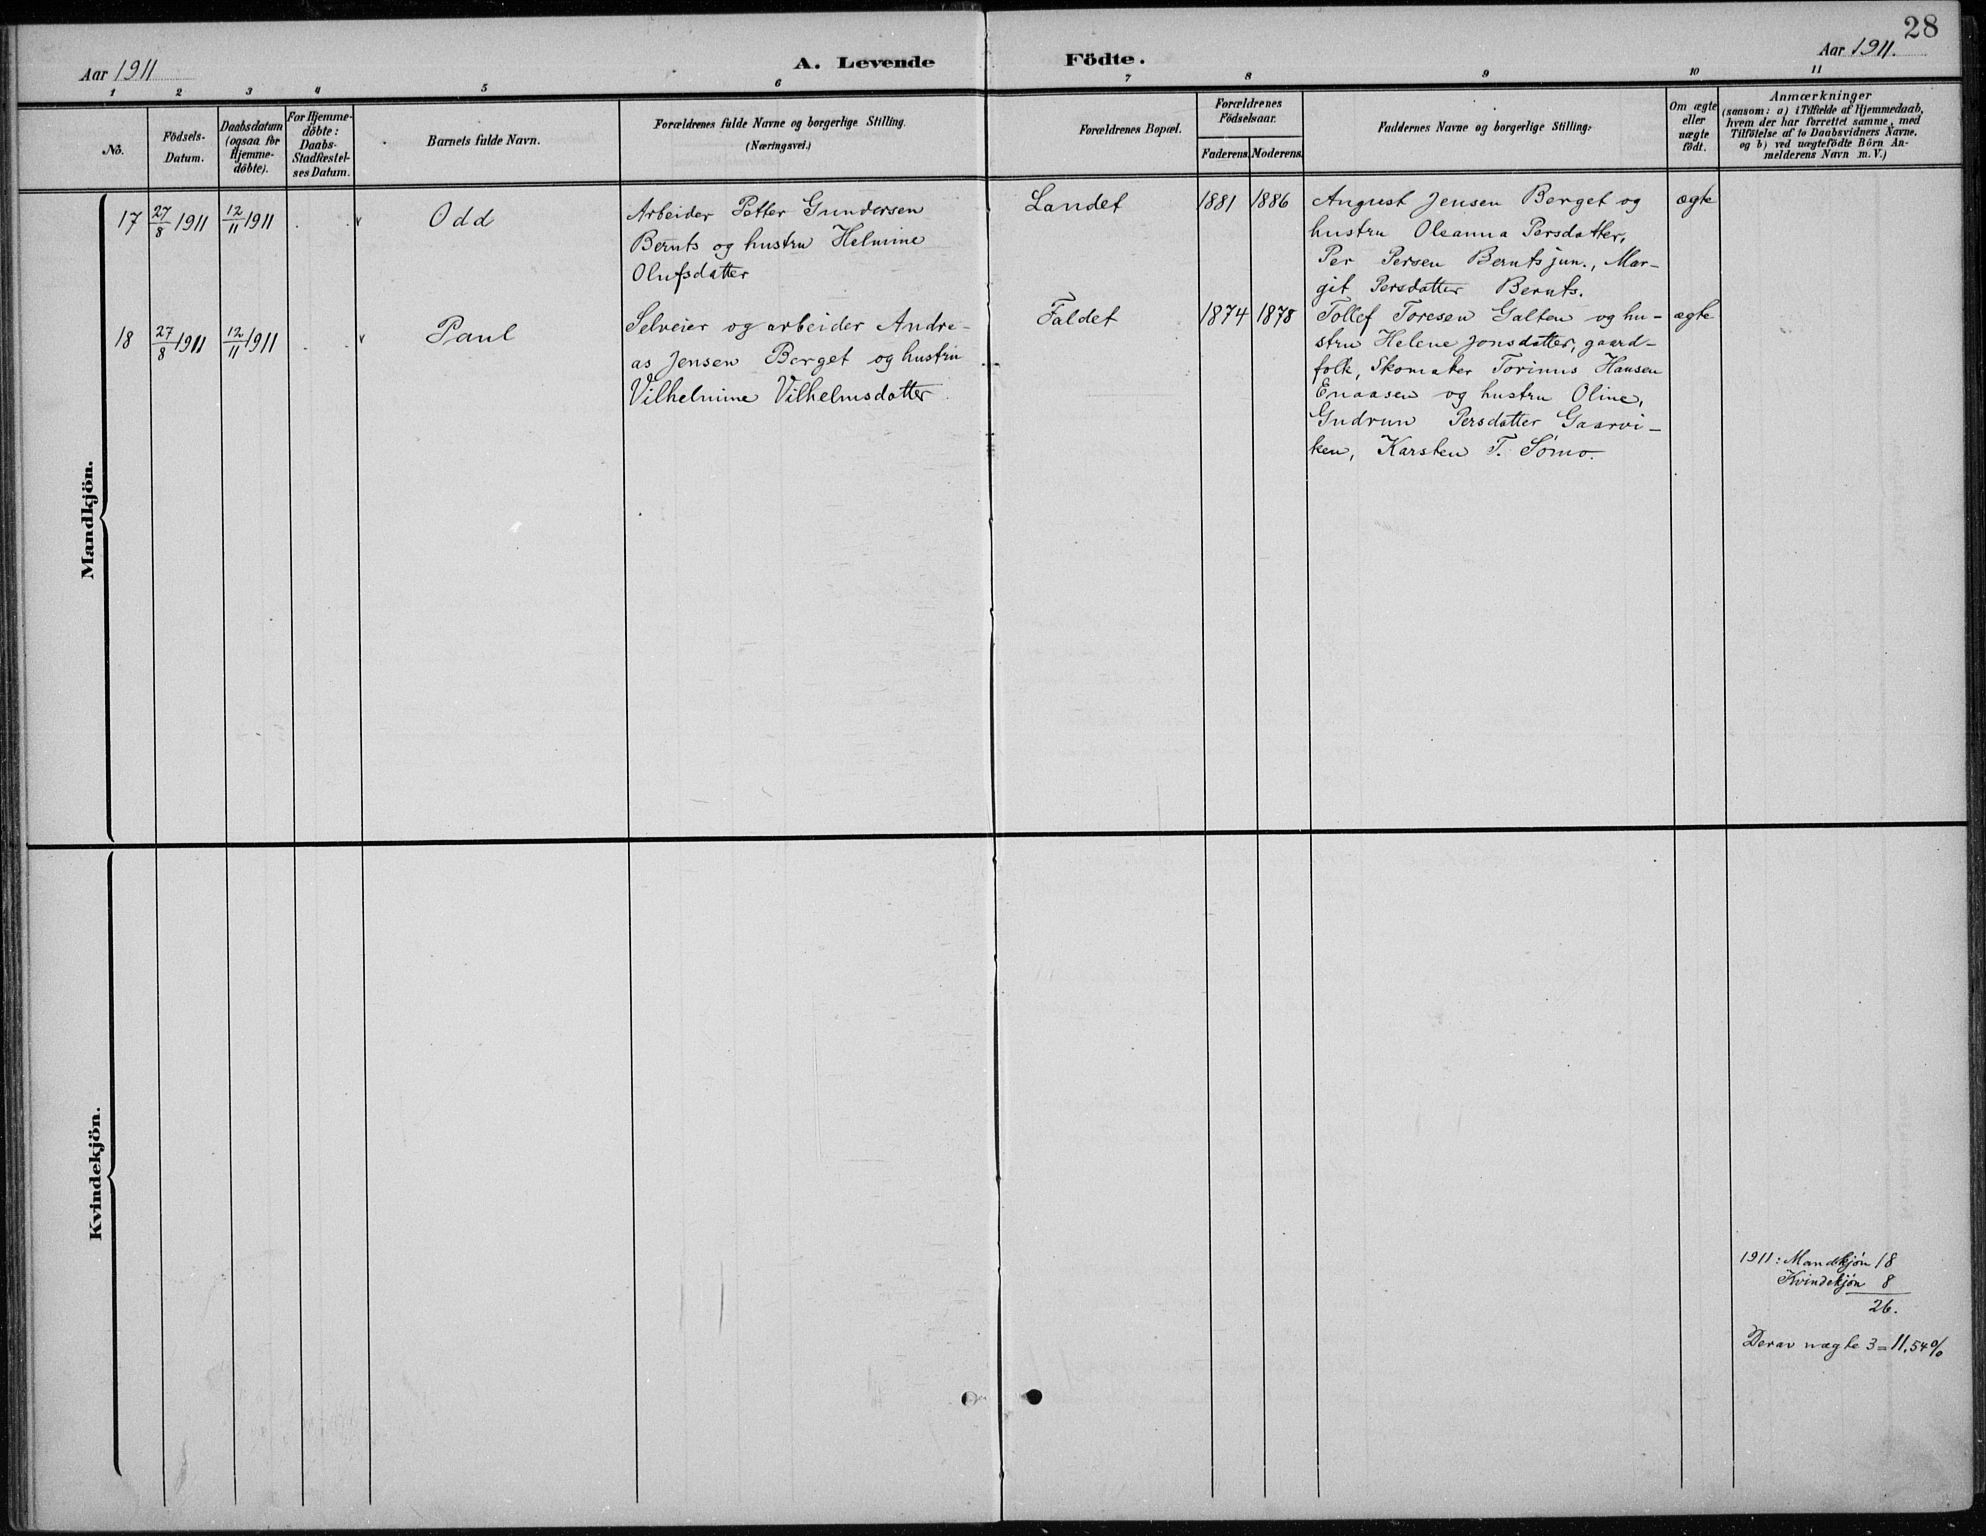 28
Aar 1911
A. Levende Födte.
Aar 1911.
1 2 3 4 5 6 7 8 9 10 11
No.
Födsels-
Datum.
Daabsdatum
(ogsaa for
Hjemme-
döbte).
For Hjemme-
döbte:
Daabs-
Stadfæstel-
ses Datum.
Barnets fulde Navn.
Forældrenes fulde Navne og borgerlige Stilling.
(Næringsvei.)
Forældrenes Bopæl.
Forældrenes
Födselsaar.
Faderens. Moderens.
Faddernes Navne og borgerlige Stilling:
Om ægte
eller
uægte
födt.
Anmærkninger
(saasom: a) i Tilfælde af Hjemmedaab,
hvem der har forrettet samme, med
Tilföielse af to Daabsvidners Navne.
og b) ved uægtefödte Börn An-
melderens Navn m. V.)
Mandkjön.
17 27/8 1911 12/11 1911 v Odd
Arbeider Petter Gundersen
Bernts og hustru Helmine
Olufsdatter
Landet 1881 1886
August Jensen Berget og
hustru Oleanna Persdatter,
Per Persen Bernts jun., Mar-
git Persdatter Bernts.
ægte
18 27/8 1911 12/11 1911 v Paul
Selveier og arbeider Andre-
as Jensen Berget og hustru
Vilhelmine Vilhelmsdatter.
Faldet 1874 1878
Tollef Toresen Galten og hu-
stru Helene Jonsdatter, gaard-
folk, Skomaker Torinus Hansen
Enaasen og hustru Oline,
Gudrun Persdatter Gaarvi-
ken, Karsten T. Sömo.
ægte
Kvindekjön.
1911: Mandskjön 18
Kvindekjön 8
26.
Derav uægte 3 = 11,54%